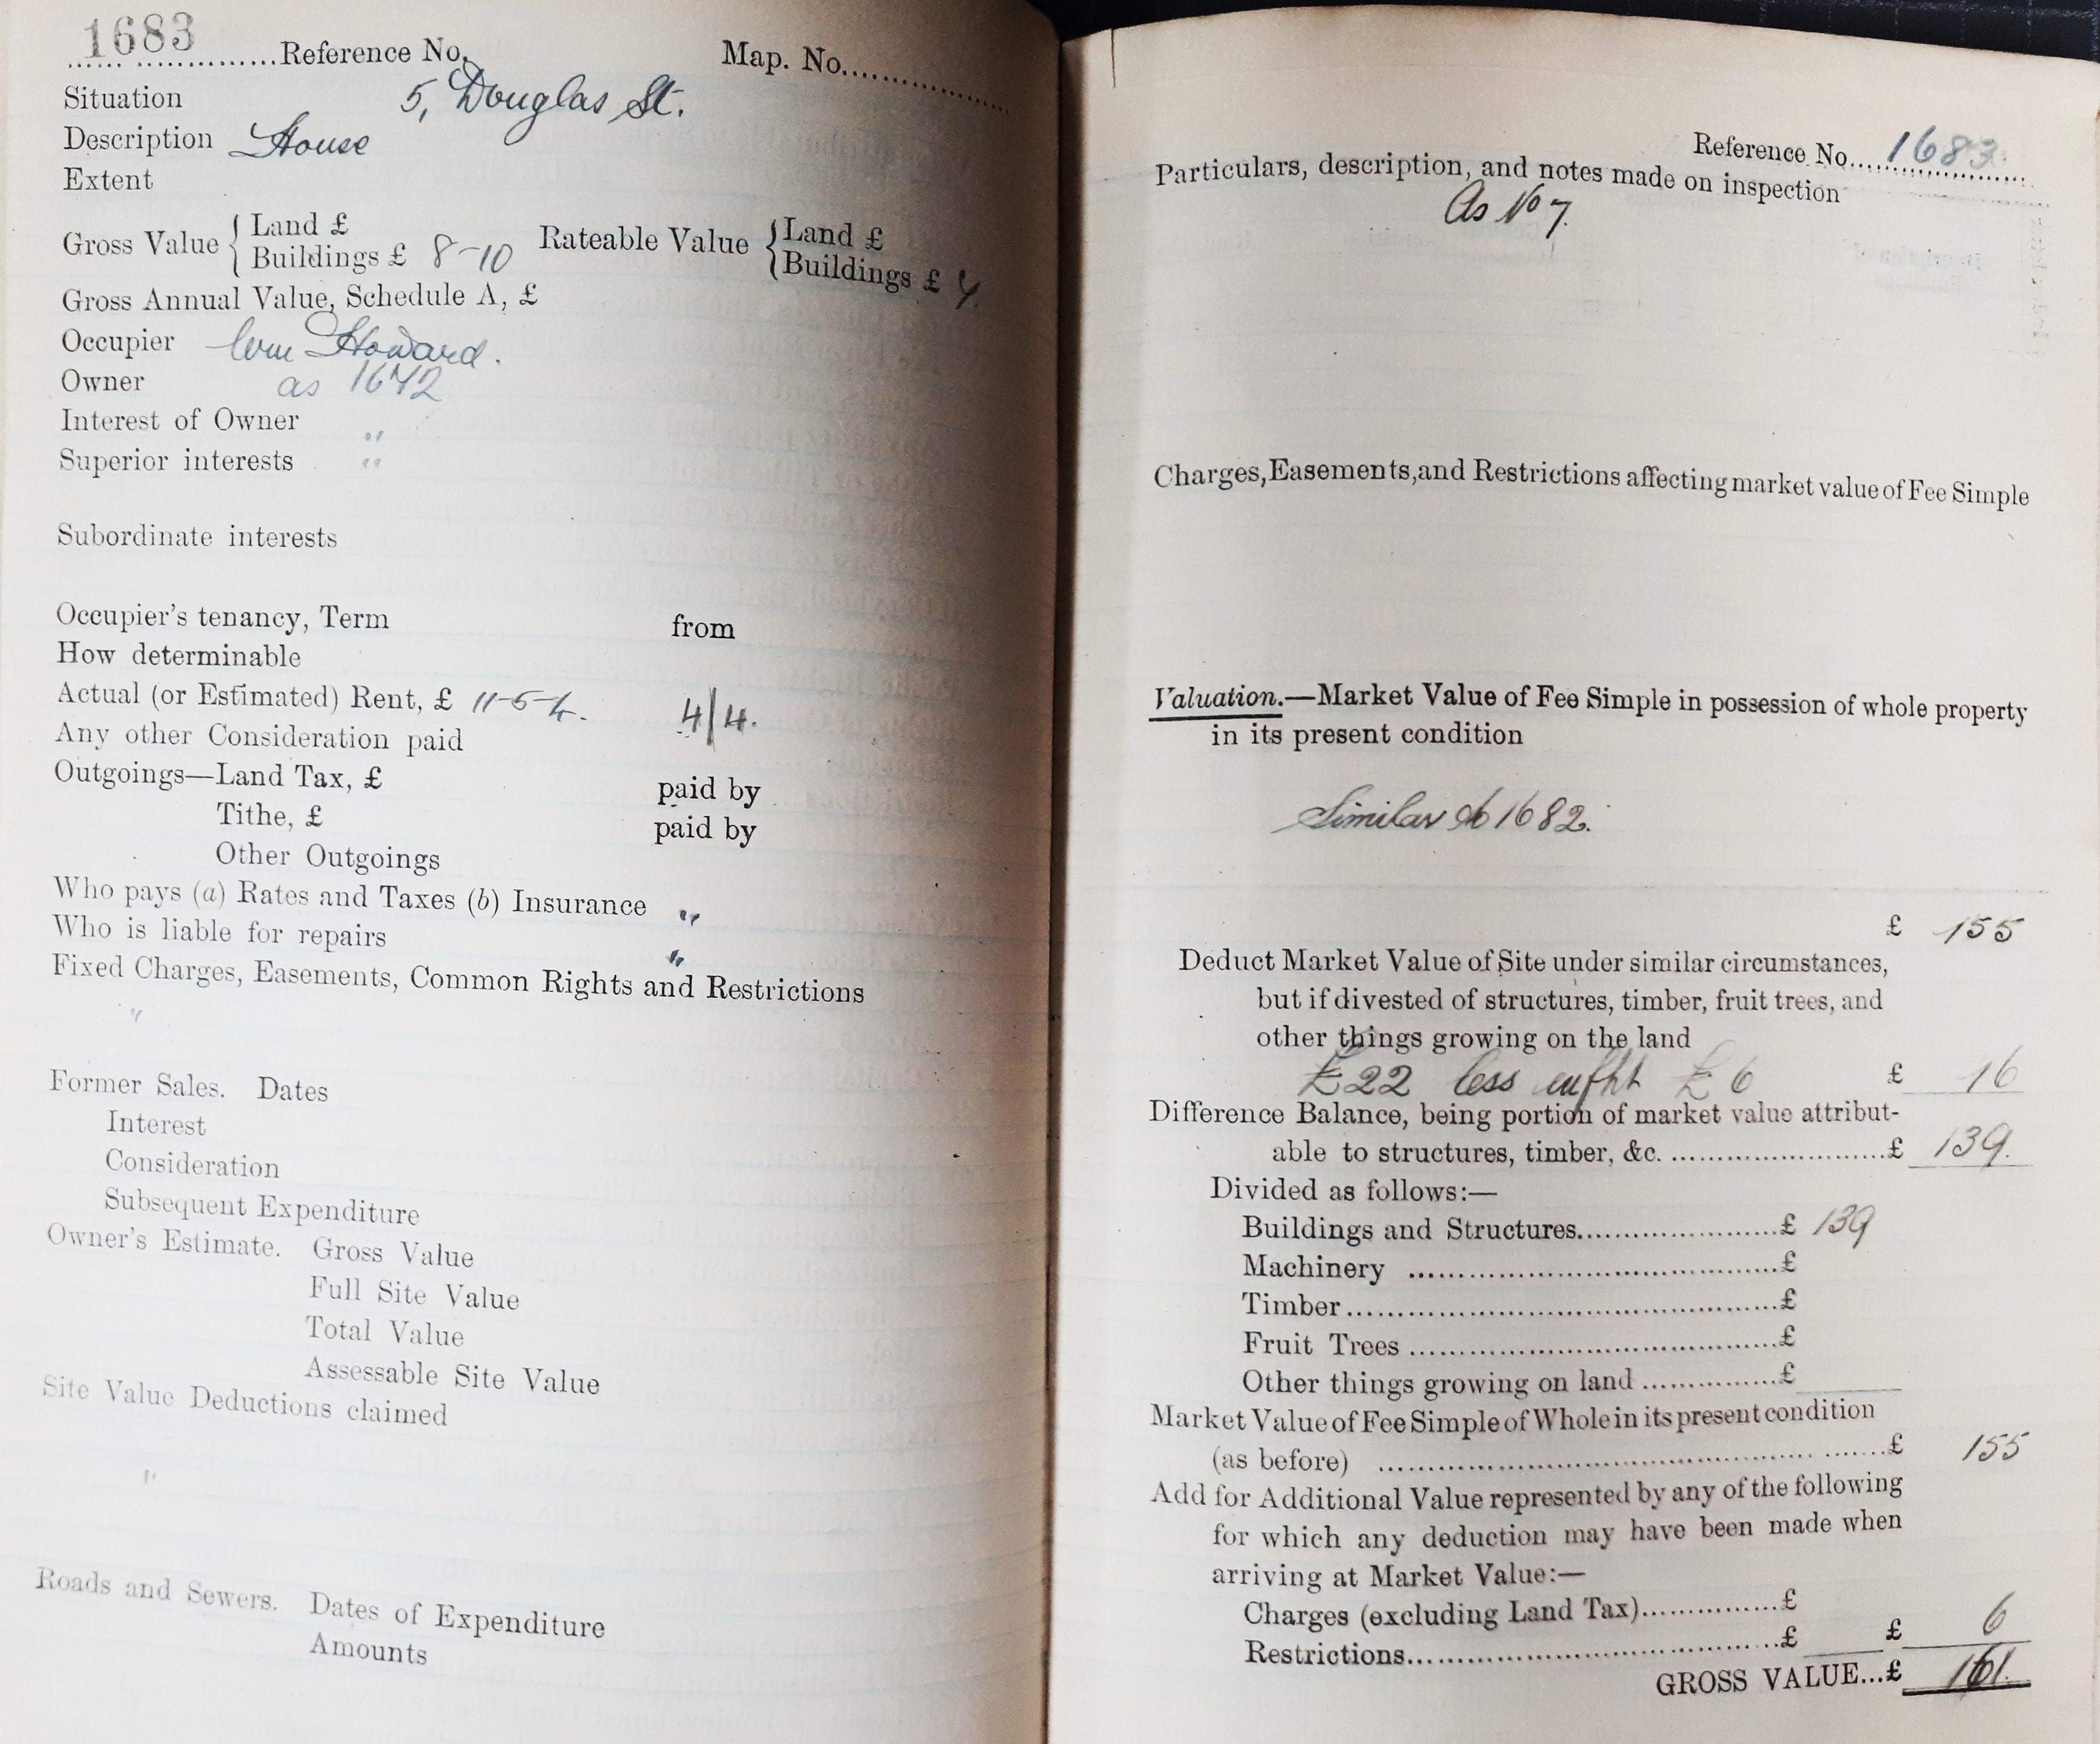 1683 Reference No. Map. No.
Situation 5, Douglas St.
Description House
Extent
Gross Value { Land £ Rateable Value { Land £
Buildings £ 8-10 Buildings £
Gross Annual Value, Schedule A, £
Occupier Wm Howard.
Owner as 1672
Interest of Owner "
Superior interests "
Subordinate interests
Occupier's tenancy, Term from
How determinable
Actual (or Estimated) Rent, £ 11-5-4. 4/4.
Any other Consideration paid
Outgoings—Land Tax, £ paid by
Tithe, £ paid by
Other Outgoings
Who pays (a) Rates and Taxes (b) Insurance "
Who is liable for repairs "
Fixed Charges, Easements, Common Rights and Restrictions
"
Former Sales. Dates
Interest
Consideration
Subsequent Expenditure
Owner's Estimate. Gross Value
Full Site Value
Total Value
Assessable Site Value
Site Value Deductions claimed
"
Roads and Sewers. Dates of Expenditure
Amounts
Reference No. 1683
Particulars, description, and notes made on inspection
As No 7.
Charges, Easements, and Restrictions affecting market value of Fee Simple
Valuation.—Market Value of Fee Simple in possession of whole property
in its present condition
Similar to 1682.
£ 155
Deduct Market Value of Site under similar circumstances,
but if divested of structures, timber, fruit trees, and
other things growing on the land
£22 less £6 £ 16
Difference Balance, being portion of market value attribut-
able to structures, timber, &c. £ 139.
Divided as follows:—
Buildings and Structures £ 139
Machinery £
Timber £
Fruit Trees £
Other things growing on land £
Market Value of Fee Simple of Whole in its present condition
(as before) £ 155
Add for Additional Value represented by any of the following
for which any deduction may have been made when
arriving at Market Value:—
Charges (excluding Land Tax) £
Restrictions £ £ 6
GROSS VALUE...£ 161.